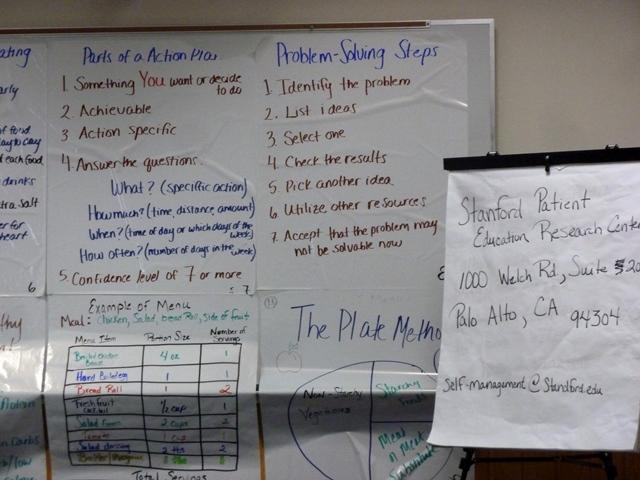 ating
arly
of food
day to day
each food
drinks
xtra salt
er for
heart
6
Parts of a Action Plan
1. Something You want or decide
to do
2. Achievable
3 Action specific
4. Answer the questions.
What? (speciffic action)
How much? (time, distance, amount)
When? (time of day or which days of the
week)
How often? (number of days in the
week)
5. Confidence level of 7 or more
7
Problem-Solving Steps
1. Identify the problem
2. List ideas
3. Select one
4. Check the results
5. Pick another idea
6. Utilize other resources
7. Accept that the problem may
not be solvable now
8
Stanford Patient
Education Research Cente
1000 Welch Rd., Suite 20
Palo Alto, CA 94304
Self-management@Standford.edu
Example of Menu
Meal: Chicken, Salad, bread Roll, Side of fruit
Menu Item Portion Size Number of
Servings
4 oz 1
1 1
Bread Roll 1 2
Fresh fruit
1/2 cup 1
Salad 2 cups 2
1 cup
Salad dressing 2 2
Total Servings
The Plate Metho
Non-Starchy
Vegetables
Starchy
Foods
Meat
n Meat
Substitute
n Carbs